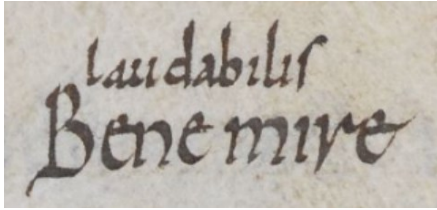 laudabilis
Bene mire